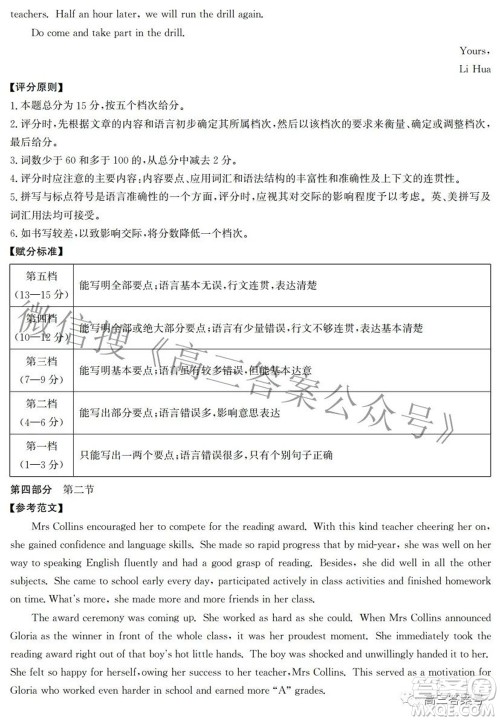 teachers. Half an hour later, we will run the drill again.
Do come and take part in the drill.
Yours,
Li Hua
【评分原则】
1. 本题总分为 15 分，按五个档次给分。
2. 评分时，先根据文章的内容和语言初步确定其所属档次，然后以该档次的要求来衡量、确定或调整档次，
最后给分。
3. 词数少于 60 和多于 100 的，从总分中减去 2 分。
4. 评分时应注意的主要内容：内容要点、应用词汇和语法结构的丰富性和准确性及上下文的连贯性。
5. 拼写与标点符号是语言准确性的一个方面，评分时，应视其对交际的影响程度予以考虑。英、美拼写及
词汇用法均可接受。
6. 如书写较差，以致影响交际，将分数降低一个档次。
【赋分标准】
第五档
（13—15 分） 能写明全部要点；语言基本无误，行文连贯，表达清楚
第四档
（10—12 分） 能写明全部或绝大部分要点；语言有少量错误，行文不够连贯，表达清楚
第三档
（7—9 分） 能写明基本要点；语言虽有较多错误，但能基本达意
第二档
（4—6 分） 能写出部分要点；语言错误多，影响意思表达
第一档
（1—3 分） 只能写出一两个要点；语言错误很多，只有个别句子正确
微信搜《高三答案公众号》
第四部分 第二节
【参考范文】
Mrs Collins encouraged her to compete for the reading award. With this kind teacher cheering her on,
she gained confidence and language skills. She made so rapid progress that by mid-year, she was well on her
way to speaking English fluently and had a good grasp of reading. Besides, she did well in all the other
subjects. She came to school early every day, participated actively in class activities and finished homework
on time. What's more, she made more and more friends in her class.
The award ceremony was coming up. She worked as hard as she could. When Mrs Collins announced
Gloria as the winner in front of the whole class, it was her proudest moment. She immediately took the
reading award right out of that boy's hot little hands. The boy was shocked and finally admitted it to her.
She felt so happy for herself, owing her success to her teacher, Mrs Collins. This served as a motivation for
Gloria who worked even harder in school and earned more "A" grades.
高三答案号
答案圈
MXQE.COM